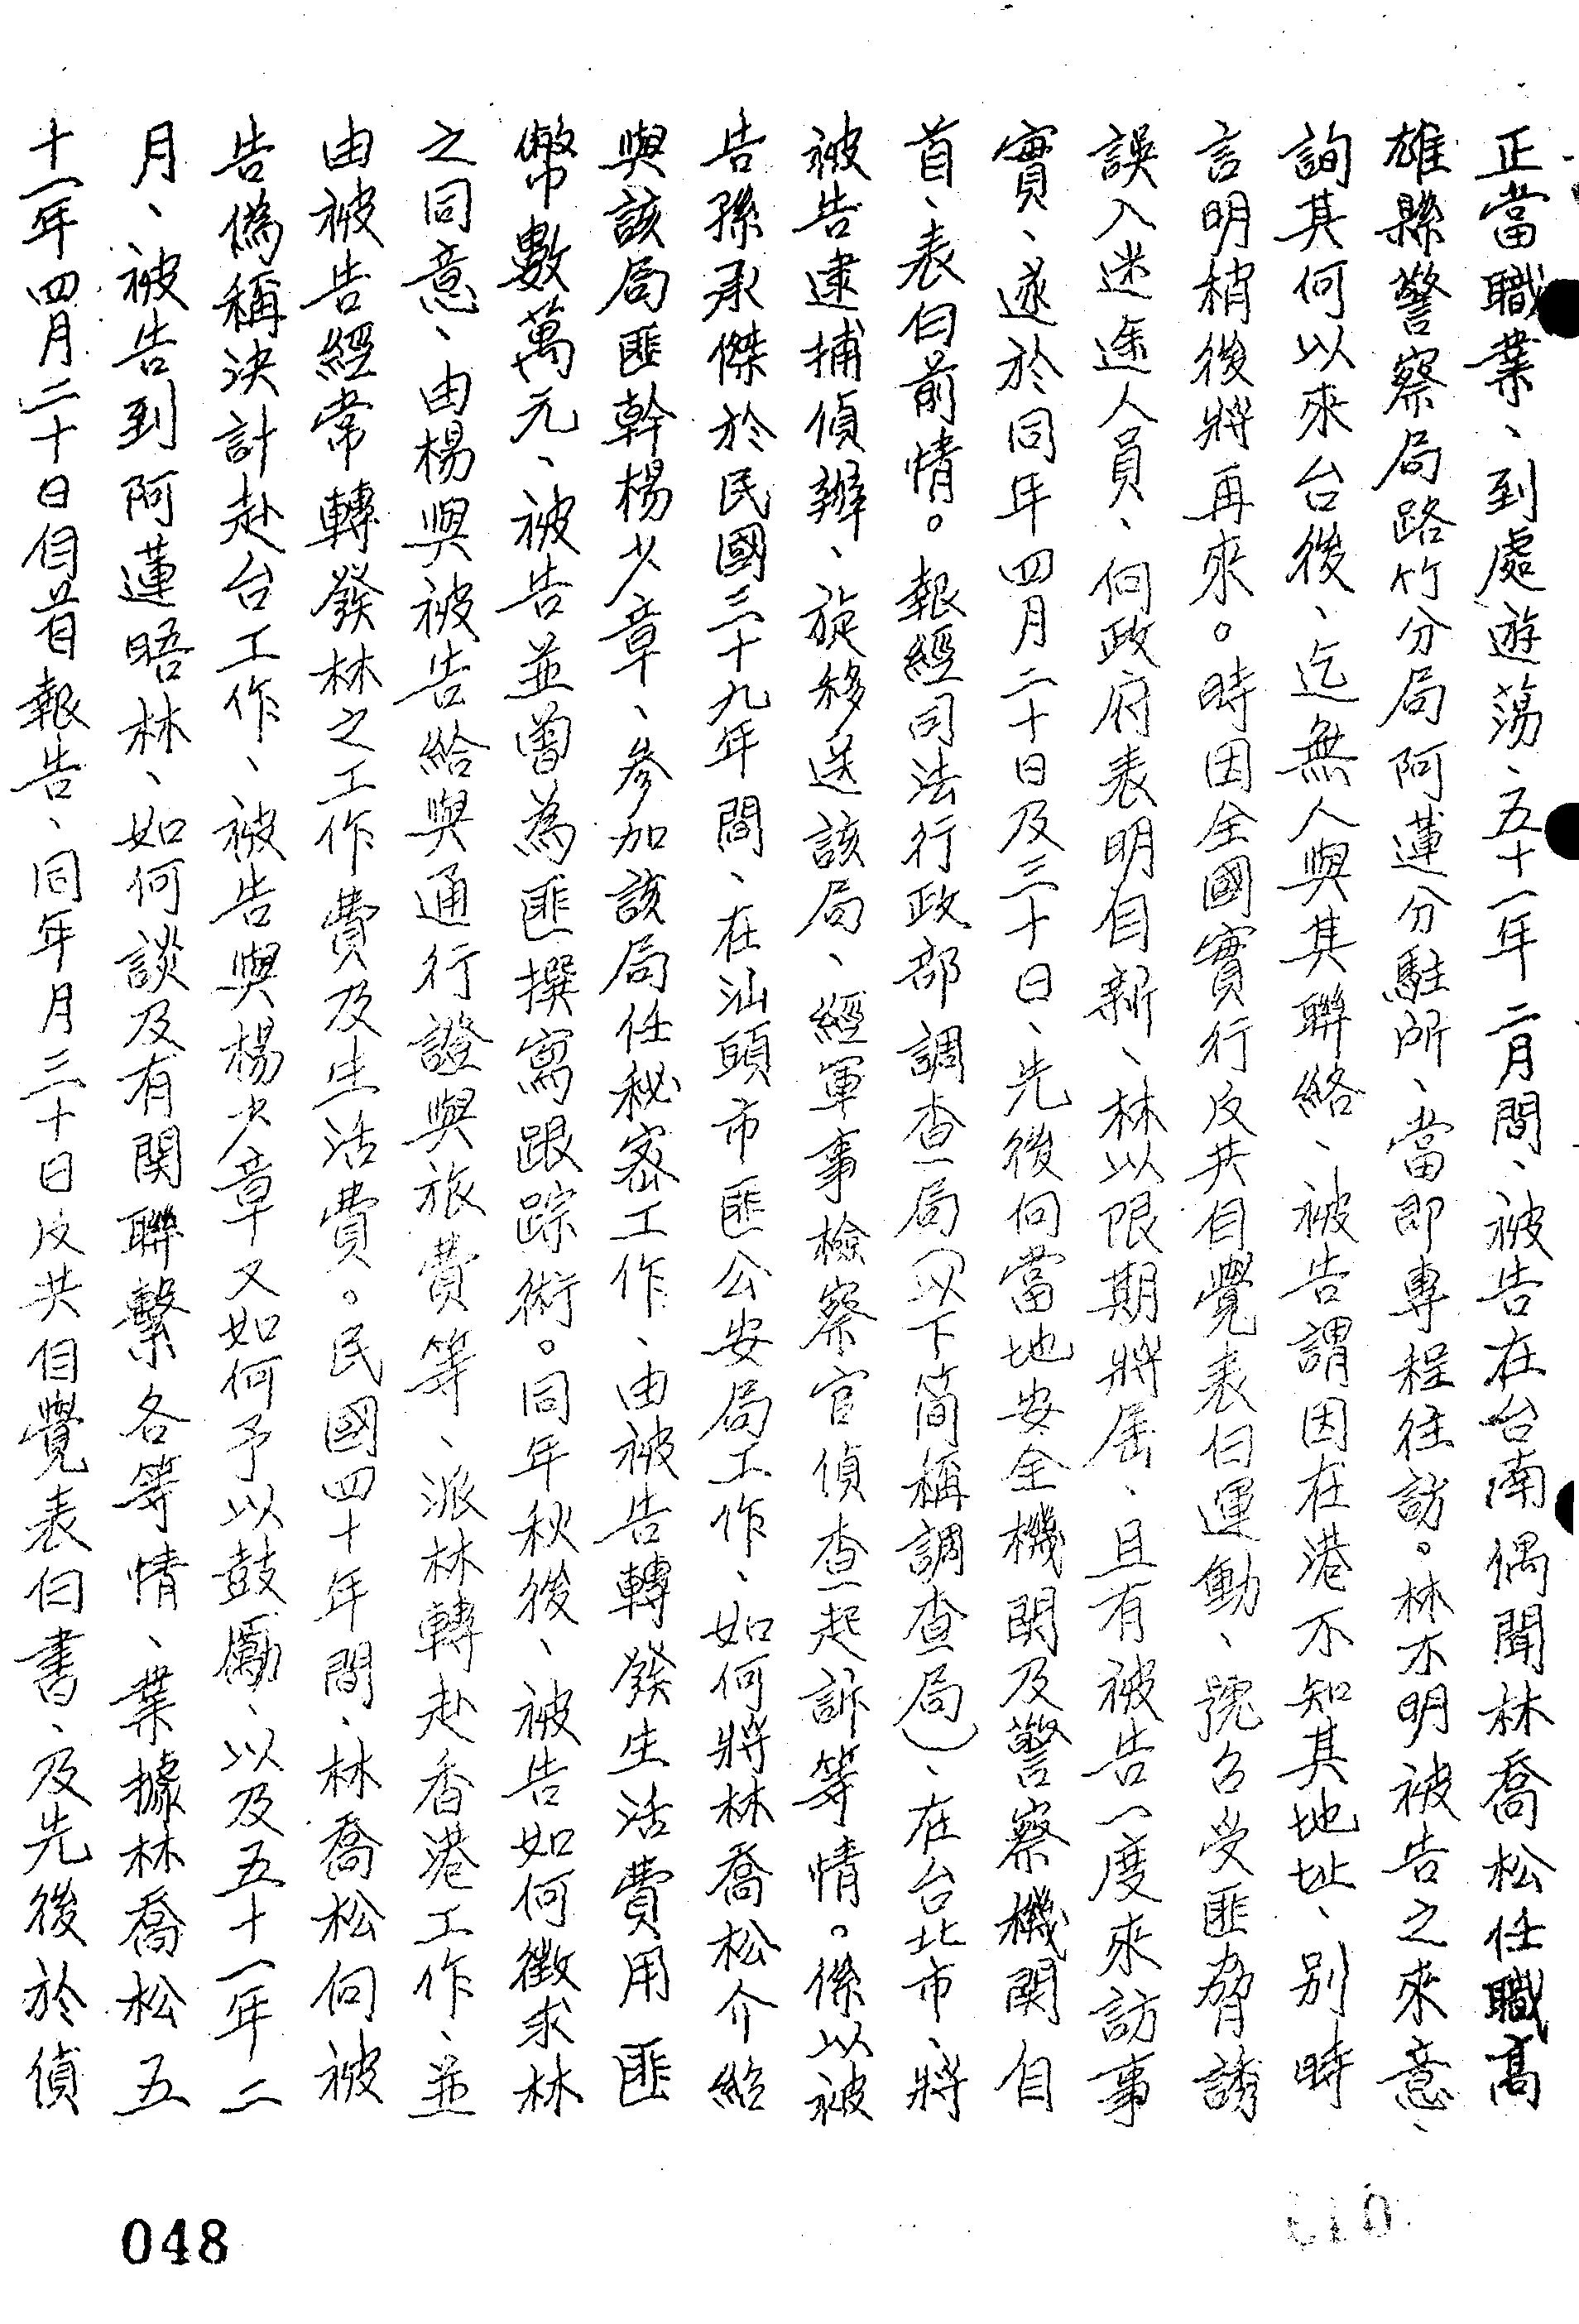 正當職業、到處遊蕩、五十一年二月間、被告在台南偶聞林喬松任職高
雄縣警察局路竹分局阿蓮分駐所、當即專程往訪。林不明被告之來意、
詢其何以來台後、迄無人與其聯絡、被告謂因在港不知其地址、別時
言明稍後將再來。時因全國實行反共自覺表白運動、號召受匪脅誘
誤入迷途人員、向政府表明自新、林以限期將屆、且有被告一度來訪事
實、遂於同年四月二十日及三十日、先後向當地安全機関及警察機関自
首、表白前情。報經司法行政部調查局（以下簡稱調查局）、在台北市、將
被告逮捕偵辦、旋移送該局、經軍事檢察官偵查起訴等情。係以被
告孫承傑於民國三十九年間、在汕頭市匪公安局工作、如何將林喬松介紹
與該局匪幹楊少章、參加該局任秘密工作、由被告轉發生活費用匪
幣數萬元、被告並曾為匪撰寫跟踪術。同年秋後、被告如何徵求林
之同意、由楊與被告給與通行證與旅費等、派林轉赴香港工作、並
由被告經常轉發林之工作費及生活費。民國四十年間、林喬松向被
告偽稱決計赴台工作、被告與楊少章又如何予以鼓勵、以及五十一年二
月、被告到阿蓮晤林、如何談及有関聯繫各等情、業據林喬松五
十一年四月二十日自首報告、同年月三十日反共自覺表白書、及先後於偵
048